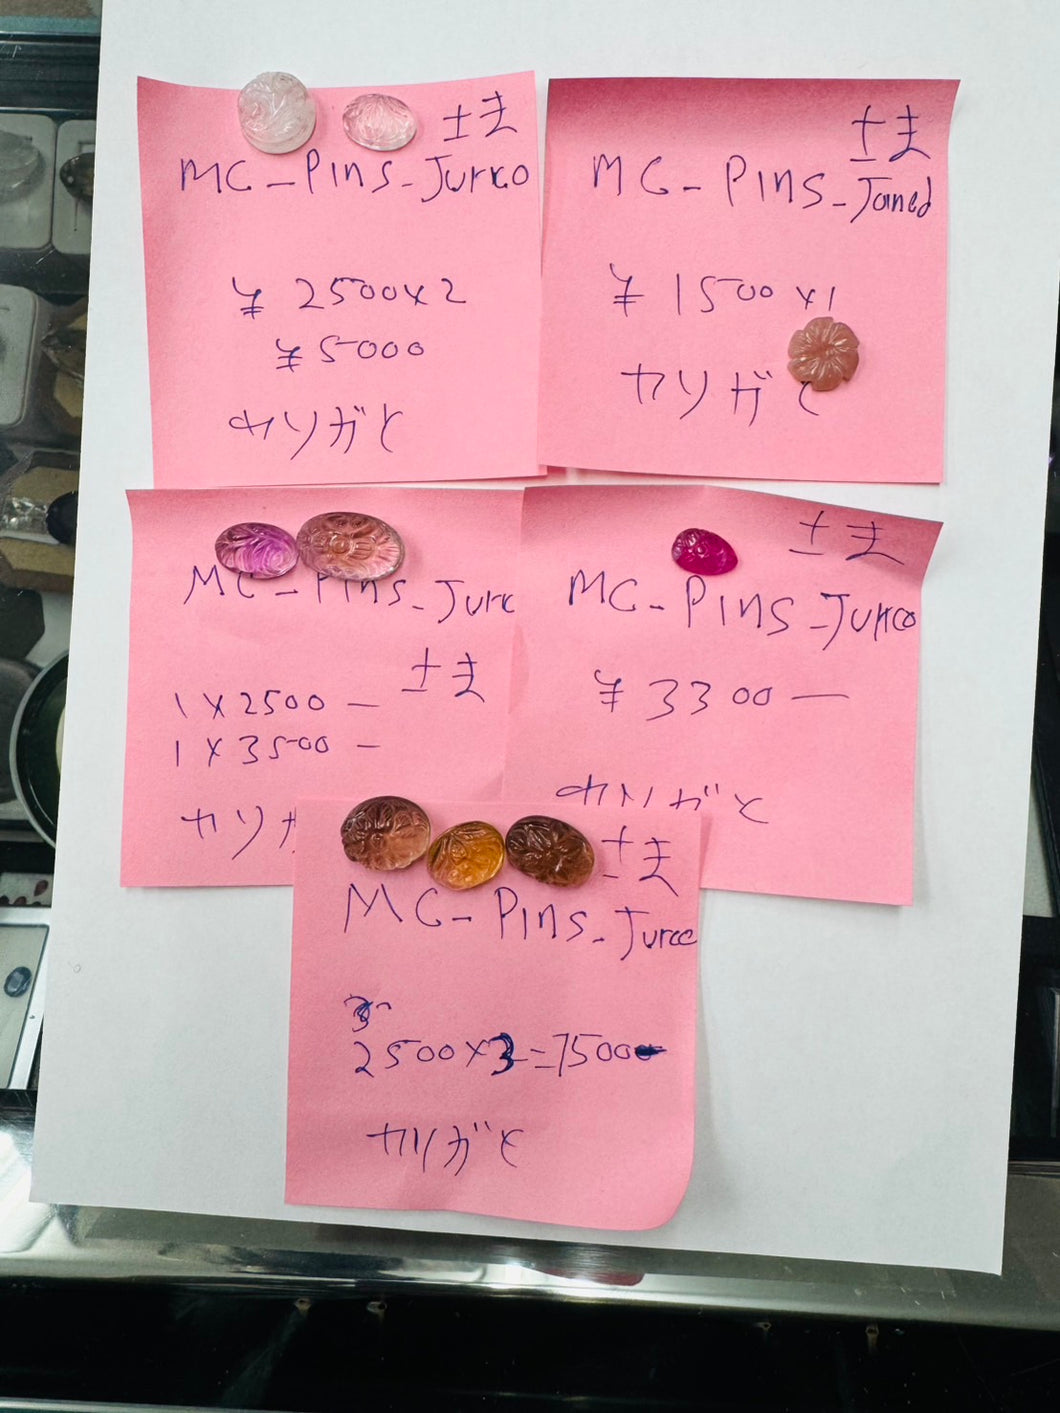 ±ま
MC-Pins-Jurco
¥2500x2
¥5000
カリガと
±ま
MC-Pins-Joined
¥1500x1
カリガと
MC-Pins-Jurc
±ま
1x2500-
1x3500-
カリガ
±ま
MC-Pins-Jurco
¥3300-
カリガと
±ま
MC-Pins-Jurco
2500x3=7500
カリガと